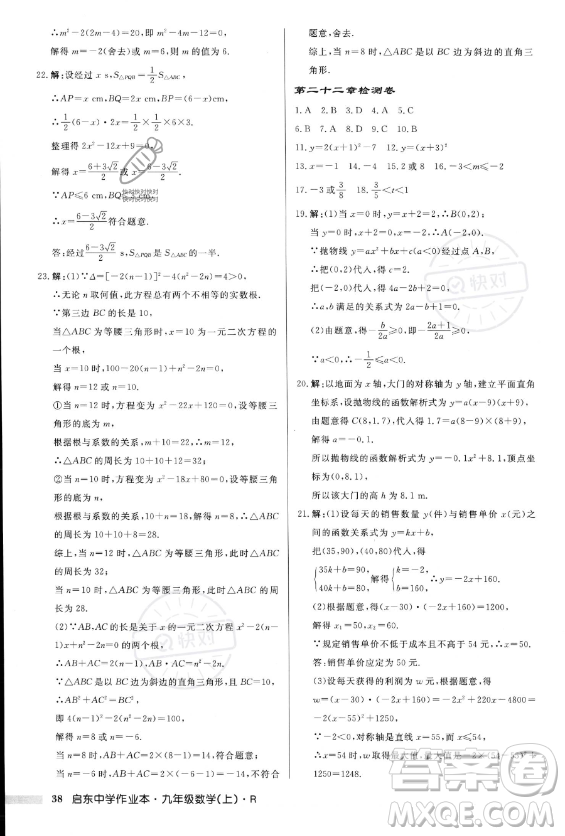 ∴m²-2m-8=0.
解得 m=-2(舍去)或 m=4, ∴m 的值为 6.
22.解:设经过 x s,S△PQB=1/2S△ABC,
∵AP=x cm,BQ=x cm,
∴1/2(6-x)·x=1/2×1/2×6×3.
整理得
解得 x=(6+3√2)/2或x=(6-3√2)/2.
∵AP≤6,
∴x=(6-3√2)/2符合题意.
答:经过(6-3√2)/2 s,S△PQB是 S△ABC的一半.
23.解:(1)∵Δ=[-2(n-1)]²-4(n²-2n)=4>0,
∴无论 n 取何值,此方程总有两个不等的实数根.
∵第三边 BC 的长为 10,
当△ABC 是等腰三角形时,x=10 为一元二次方程的一个根,
当 x=10 时,100-20(n-1)+n²-2n=0,
解得 n=12 或 n=10,
①当 n=12 时,方程变为 x²-22x+120=0,设等腰三角形的另一个根为 m,
根据根与系数的关系,m+10=22,解得 m=12,
∴△ABC 的周长为 10+10+12=32;
②当 n=10 时,方程变为 x²-18x+80=0,设等腰三角形的另一个根为 n,
根据根与系数的关系,n+10=18,解得 n=8,
∴△ABC 的周长为 10+10+8=28.
综上,当 n=12 时,△ABC 是等腰三角形,此时△ABC 的周长为 32;
当 n=10 时,△ABC 是等腰三角形,此时△ABC 的周长为 28.
(2)∵AB,AC 的长是关于 x 的一元二次方程 x²-2(n-1)x+n²-2n=0 的两根,
∴AB+AC=2(n-1),AB·AC=n²-2n.
∵△ABC 是以 BC 为斜边的直角三角形,
∴AB²+AC²=BC²,∴(AB+AC)²-2AB·AC=10²,
即 4(n-1)²-2(n²-2n)=100,解得 n=8 或 n=-6.
当 n=8 时,AB+AC=2×(8-1)=14>0,符合题意;
当 n=-6 时,AB+AC=2×(-6-1)=-14<0,不符合题意.
综上,当 n=8 时,△ABC 是以 BC 为斜边的直角三角形.
第二十二章检测卷
1.A 2.D 3.A 4.C 5.A
6.B 7.D 8.C 9.A 10.B
11.y=2(x+1)²-7 12.y=(x+3)²
13.x=-1 14.①④ 15.3 16.-3<m≤-2
17.-3或3/8 18.3/8<t<1
19.解:(1)当 x=0 时,y=2,∴B(0,2),
当 y=0 时,-x+2=0,∴x=2,∴A(2,0).
∵抛物线 y=ax²+bx+c(a<0)经过点 A,B,
代入可得 c=2.
把(2,0)代入,得 4a-2b+2=0,
∴a,b 满足的关系式为 b=-2a-1.
(2)由题意,得-b/2a≥0,即(2a+1)/2a≥0.
∵a<0,∴-1/2≤a<0.
20.解:以地面为 x 轴,大门的对称轴为 y 轴,建立平面直角坐标系,设抛物线的函数解析式为 y=a(x-9)(x+9),
由题意得 C(8,1.7),∴1.7=a(8-9)(8+9),
解得 a=-0.1,
所以抛物线的函数解析式为 y=-0.1x²+8.1,顶点为(0,8.1).
所以该大门的高为 8.1 m.
21.解:(1)设每天的销售数量 y(件)与销售单价 x(元)之间的函数关系式为 y=kx+b,
把(35,90),(40,80)代入,得
{35k+b=90, 40k+b=80, 解得{k=-2, b=160. ∴y=-2x+160.
(2)根据题意,得(x-30)·(-2x+160)=1200,
解得 x₁=50,x₂=60,
∵规定销售单价不低于成本且不高于 54 元,∴x=50.
答:销售单价应定为 50 元.
(3)设每天获得的利润为 w 元,根据题意,得
w=(x-30)(-2x+160)=-2x²+220x-4800=-2(x-55)²+1250,
∵-2<0,对称轴为 x=55,而 x≤54,
∴x=54 时,w 取最大值,最大值是-2×(54-55)²+1250=1248.
38 启东中学作业本·九年级数学(上)·R
快对
快对